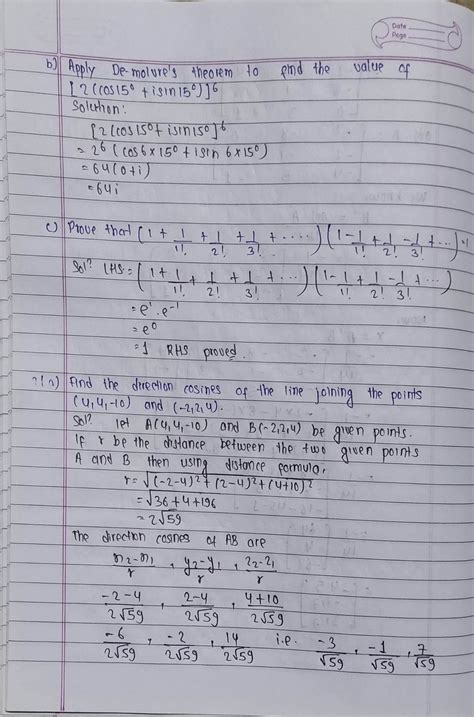 Date
Page
b) Apply De-moivre's theorem to find the value of
[2(cos15° + isin15°)]^6
Solution:
[2(cos15° + isin15°]^6
= 2^6 (cos6×15° + isin 6×15°)
= 64(0+i)
= 64i
c) Prove that (1 + 1/1! + 1/2! + 1/3! + .....) (1 - 1/1! + 1/2! - 1/3! + ...) = 1
Sol? LHS = (1 + 1/1! + 1/2! + 1/3! + ...) (1 - 1/1! + 1/2! - 1/3! + ...)
= e^1 . e^-1
= e^0
= 1 RHS proved.
(a) Find the direction cosines of the line joining the points
(4,4,-10) and (-2,2,4).
Sol? let A(4,4,-10) and B(-2,2,4) be given points.
If r be the distance between the two given points
A and B then using distance formula,
r = √(-2-4)² + (2-4)² + (4+10)²
= √36+4+196
= 2√59
The direction cosines of AB are
x2-x1/r , y2-y1/r , z2-z1/r
-2-4/2√59 , 2-4/2√59 , 4+10/2√59
-6/2√59 , -2/2√59 , 14/2√59 i.e. -3/√59 , -1/√59 , 7/√59